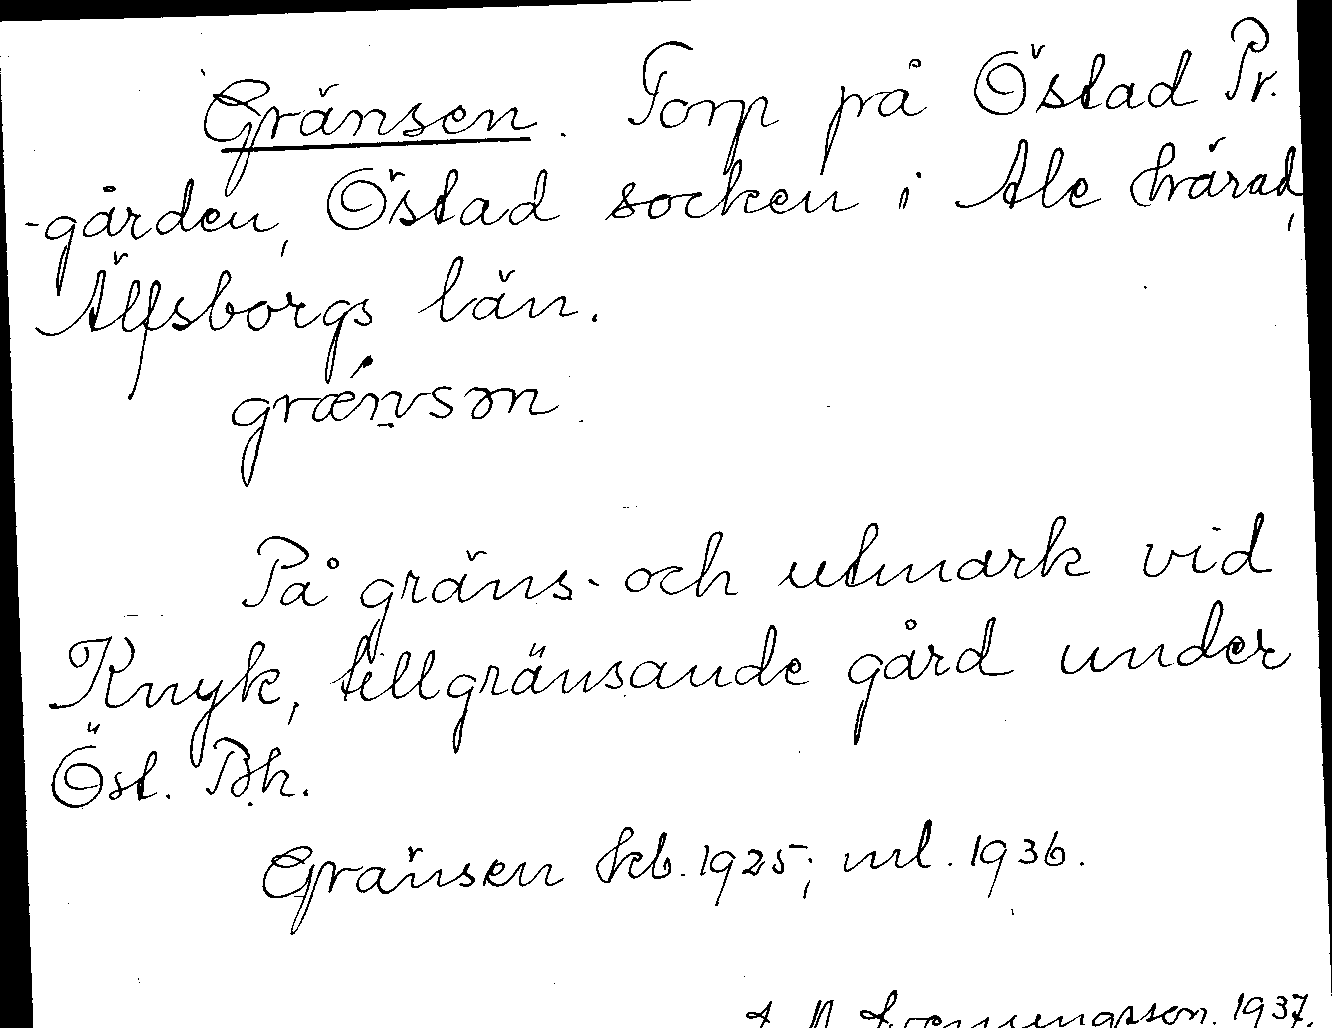 Gränsen. Torp på Östad Pr.
-gården, Östad socken i Ale härad,
Älfsborgs län.
grǽnsən.
På gräns- och utmark vid
Knyk, tillgränsande gård under
Öst. Bh.
Gränsen hb. 1925; ml. 1936.
1937.